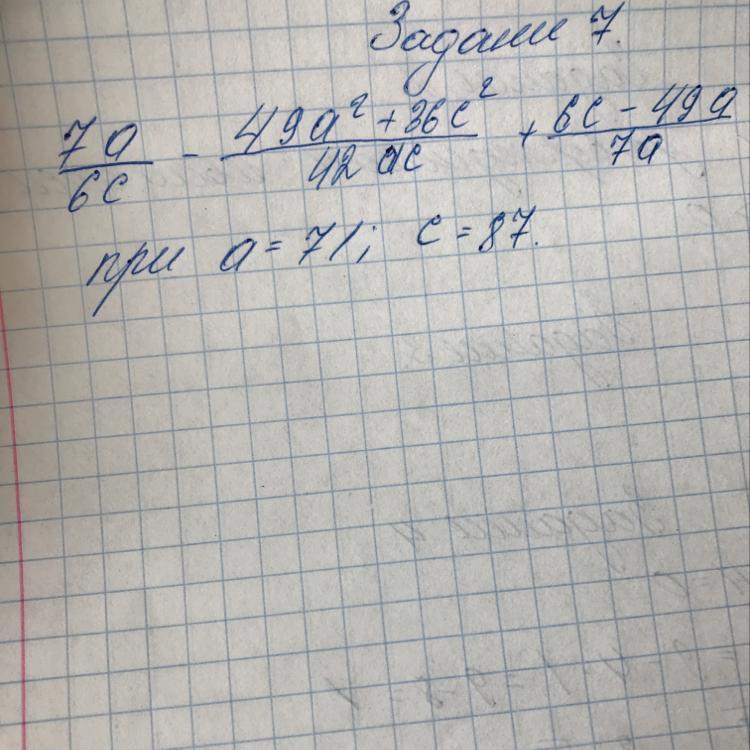 Задание 7.
7a/6c - 49a² + 36c²/42ac + 6c - 49a/7a
при a = 71; c = 87.